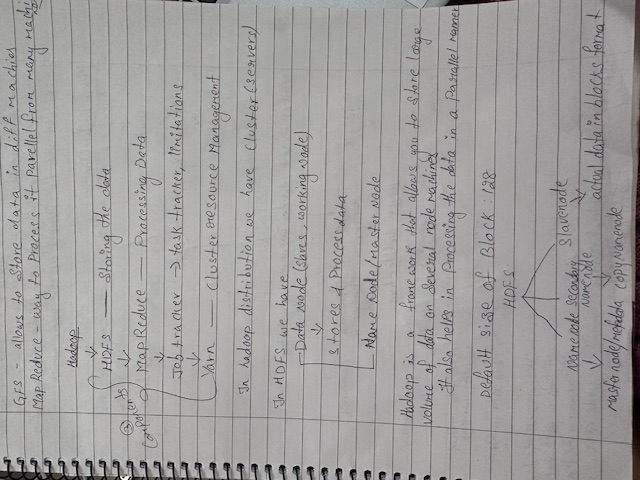 GFS - allows to Store data in diff machies
Map Reduce - way to Process it parellel from many machines
Hadoop
HDFS — Storing the data
③ Components
MapReduce — Processing Data
Job tracker → task tracker, limitations
Yarn — Cluster resource Management
In hadoop distribution we have Cluster (servers)
In HDFS we have
Data Node (slaves, working Node)
Stores & Process data
Name Node/Master Node
Hadoop is a frame work that allows you to Store large
volume of data on several node machines
It also helps in Processing the data in a Parallel manner
Default size of Block : 128
HDFS
Namenode Secondary Namenode Slavenode
actual data in blocks format
Master node/metadata copy Namenode